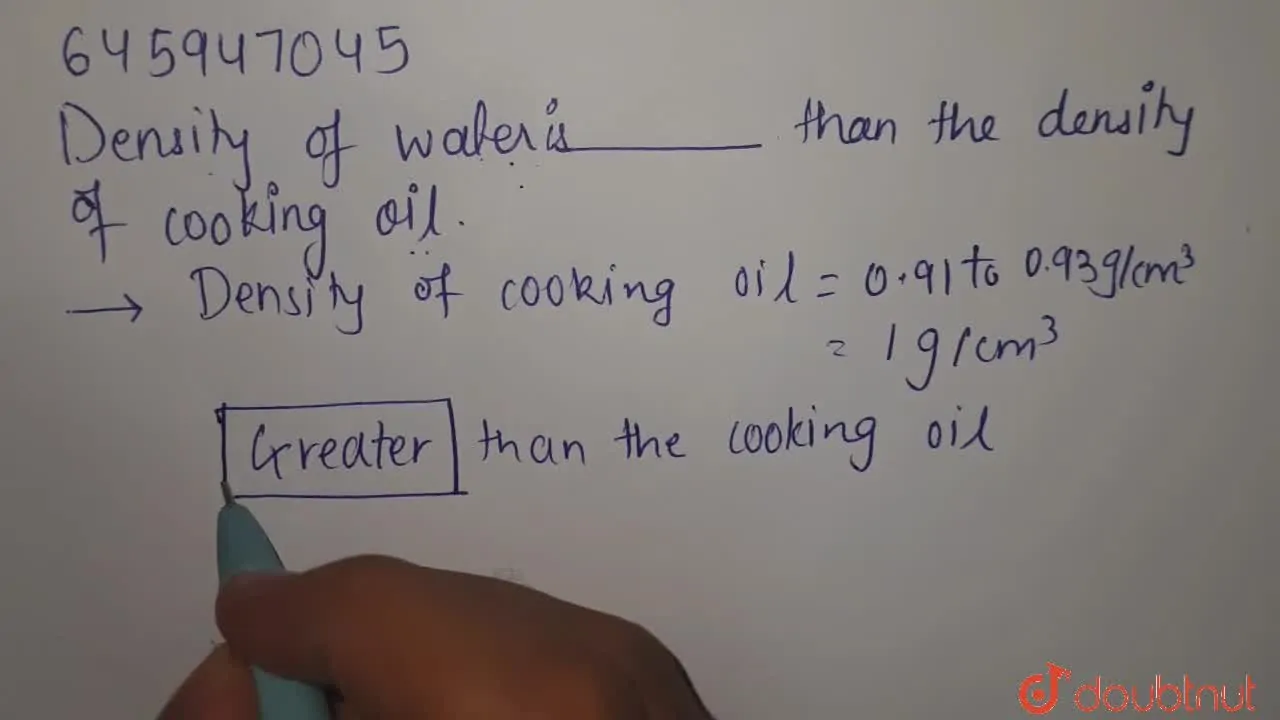 645947045
Density of water is______ than the density
of cooking oil.
→ Density of cooking oil = 0.91 to 0.93g/cm³
= 1g/cm³
Greater than the cooking oil
doubtnut